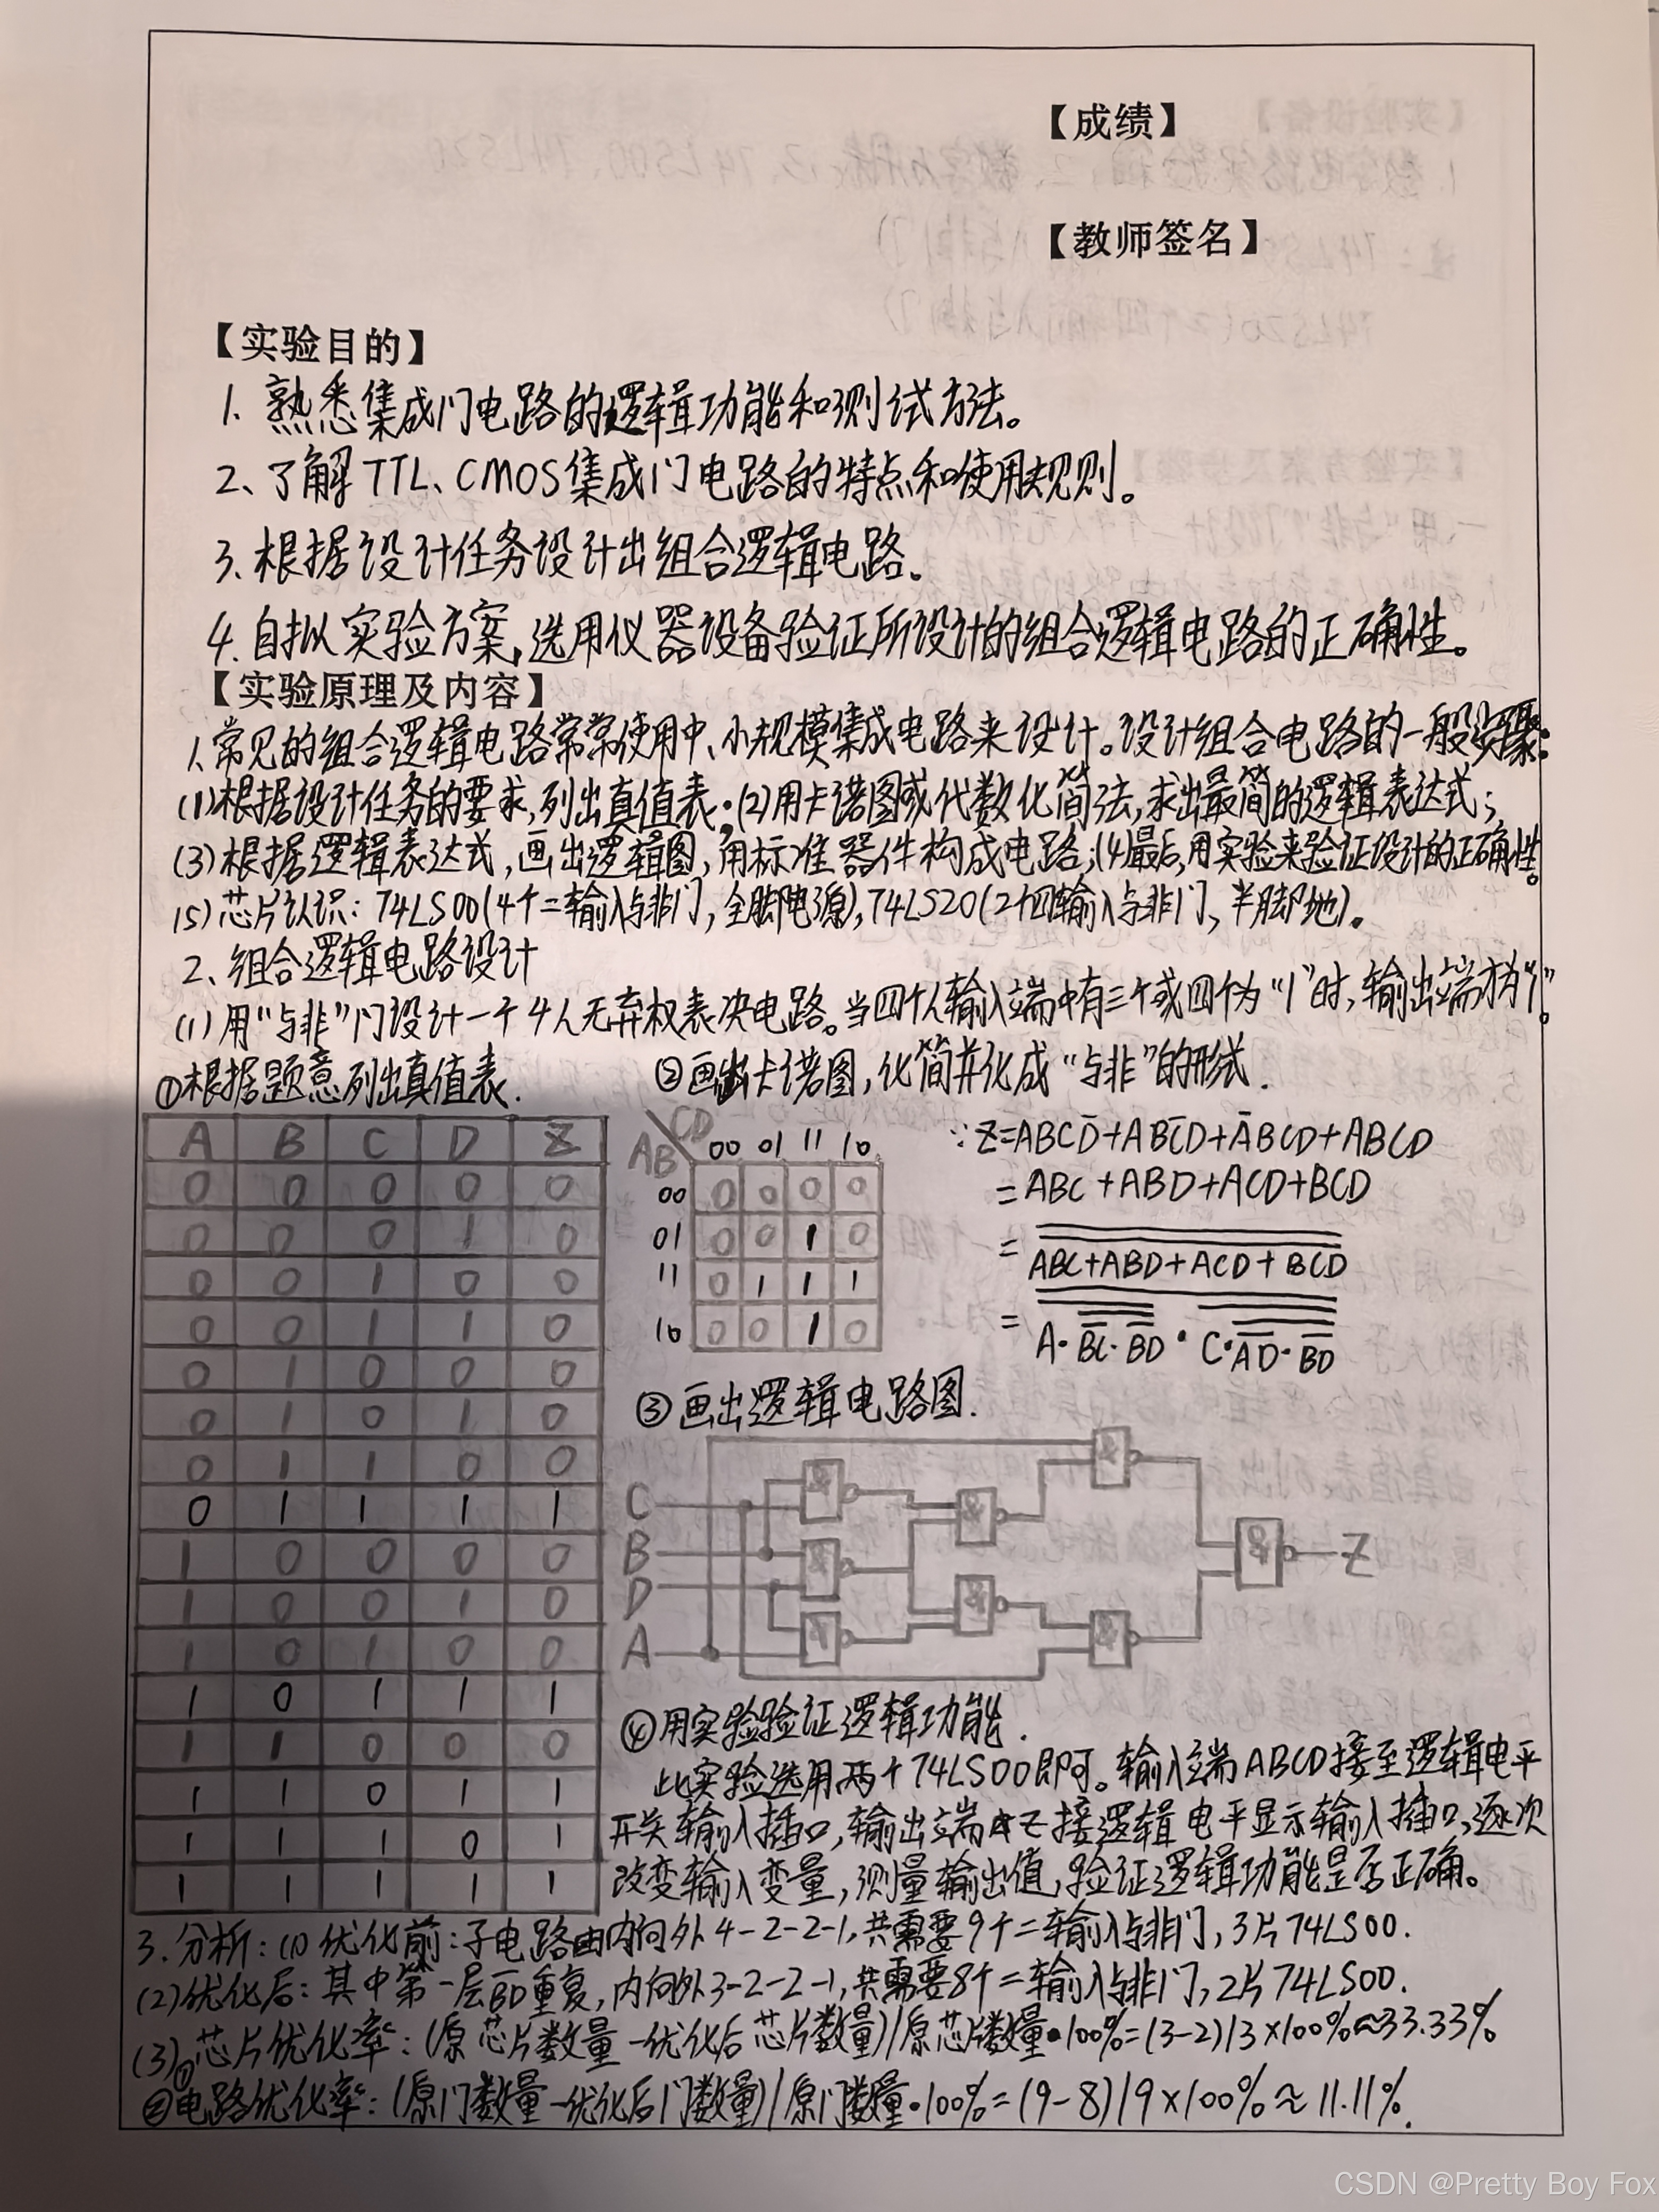 【成绩】
【教师签名】
【实验目的】
1、熟悉集成门电路的逻辑功能和测试方法。
2、了解TTL、CMOS集成门电路的特点和使用规则。
3、根据设计任务设计出组合逻辑电路。
4、自拟实验方案,选用仪器设备验证所设计的组合逻辑电路的正确性。
【实验原理及内容】
1、常见的组合逻辑电路常常使用中、小规模集成电路来设计。设计组合电路的一般步骤:
(1)根据设计任务的要求,列出真值表;(2)用卡诺图或代数化简法,求出最简的逻辑表达式;
(3)根据逻辑表达式,画出逻辑图,用标准器件构成电路;(4)最后,用实验来验证设计的正确性。
(5)芯片认识:74LS00(4个二输入与非门,全脚电源),74LS20(2个四输入与非门,半脚地)。
2、组合逻辑电路设计
(1)用“与非”门设计一个4人无弃权表决电路。当四个人输入端中有三个或四个为“1”时,输出端才为“1”。
①根据题意列出真值表.
A B C D Z
0 0 0 0 0
0 0 0 1 0
0 0 1 0 0
0 0 1 1 0
0 1 0 0 0
0 1 0 1 0
0 1 1 0 0
0 1 1 1 1
1 0 0 0 0
1 0 0 1 0
1 0 1 0 0
1 0 1 1 1
1 1 0 0 0
1 1 0 1 1
1 1 1 0 1
1 1 1 1 1
②画出卡诺图,化简并化成“与非”的形式.
CD
AB 00 01 11 10
00 0 0 0 0
01 0 0 1 0
11 0 1 1 1
10 0 0 1 0
∵Z=ABCD̄+ABC̄D+ĀBCD+ABCD
=ABC+ABD+ACD+BCD
=ABC+ABD+ACD+BCD
=A·BC·BD·C·AD·BD
③画出逻辑电路图.
C
B
D
A
& & & & & & & &
Z
④用实验验证逻辑功能.
此实验选用两个74LS00即可。输入端ABCD接至逻辑电平
开关输入插口,输出端Z接逻辑电平显示输入插口,逐次
改变输入变量,测量输出值,验证逻辑功能是否正确。
3.分析:(1)优化前:子电路由内向外4-2-2-1,共需要9个二输入与非门,3片74LS00.
(2)优化后:其中第一层BD重复,内向外3-2-2-1,共需要8个二输入与非门,2片74LS00.
(3)①芯片优化率:(原芯片数量-优化后芯片数量)/原芯片数量·100%=(3-2)/3×100%≈33.33%
②电路优化率:(原门数量-优化后门数量)/原门数量·100%=(9-8)/9×100%≈11.11%.
CSDN @Pretty Boy Fox